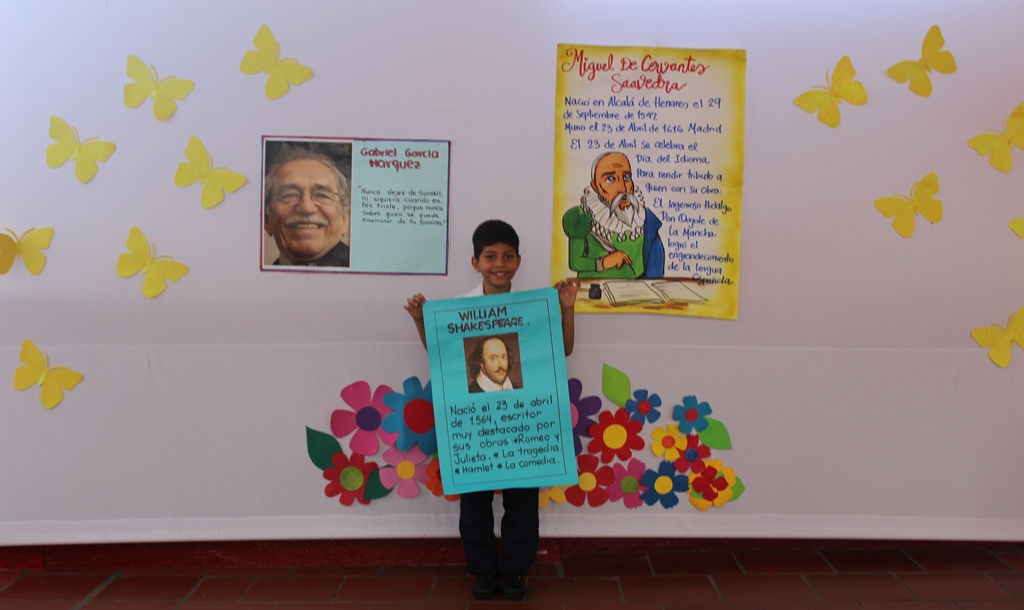 Gabriel García
Márquez
"Nunca dejes de Sonreír,
ni siquiera cuando es
tés triste, porque nunca
Sabes quién se puede
enamorar de tu Sonrisa."
Miguel De Cervantes
Saavedra
Nació en Alcalá de Henares, el 29
de Septiembre de 1547
Murio el 23 de Abril de 1616 Madrid
El 23 de Abril se celebra el
Día del Idioma
Para rendir tributo a
quien con su Obra:
El Ingenioso Hidalgo
Don Quijote de
la Mancha
logró el
engrandecimiento
de la lengua
Española
WILLIAM
SHAKESPEARE.
Nació el 23 de abril
de 1.564, escritor
muy destacado por
sus obras:*Romeo y
Julieta. * La tragedia
*Hamlet * La comedia.